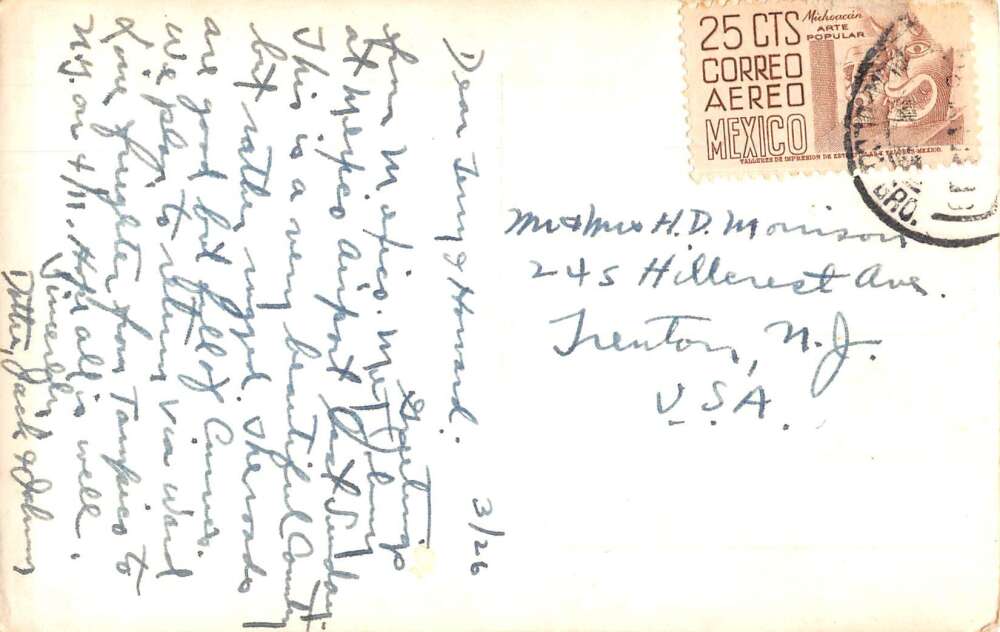 3/26
Dear Terry & Howard:
Greetings
from Mexico. Met Johnny
at Mexico airport last Sunday.
This is a very beautiful Country
but rather rugged. The roads
are good but full of Curves.
We plan to return via Ward
Line freighter from Tampico to
N.Y. on 4/11. Hope all is well.
Sincerely,
Dottie, Jack & Johnny
25 CTS
CORREO
AEREO
MEXICO
Michoacán
ARTE
POPULAR
TALLERES DE IMPRESION DE VALORES-MEXICO
GRO.
Mr & Mrs H. D. Morrison
245 Hillcrest Ave.
Trenton, N. J.
U. S. A.